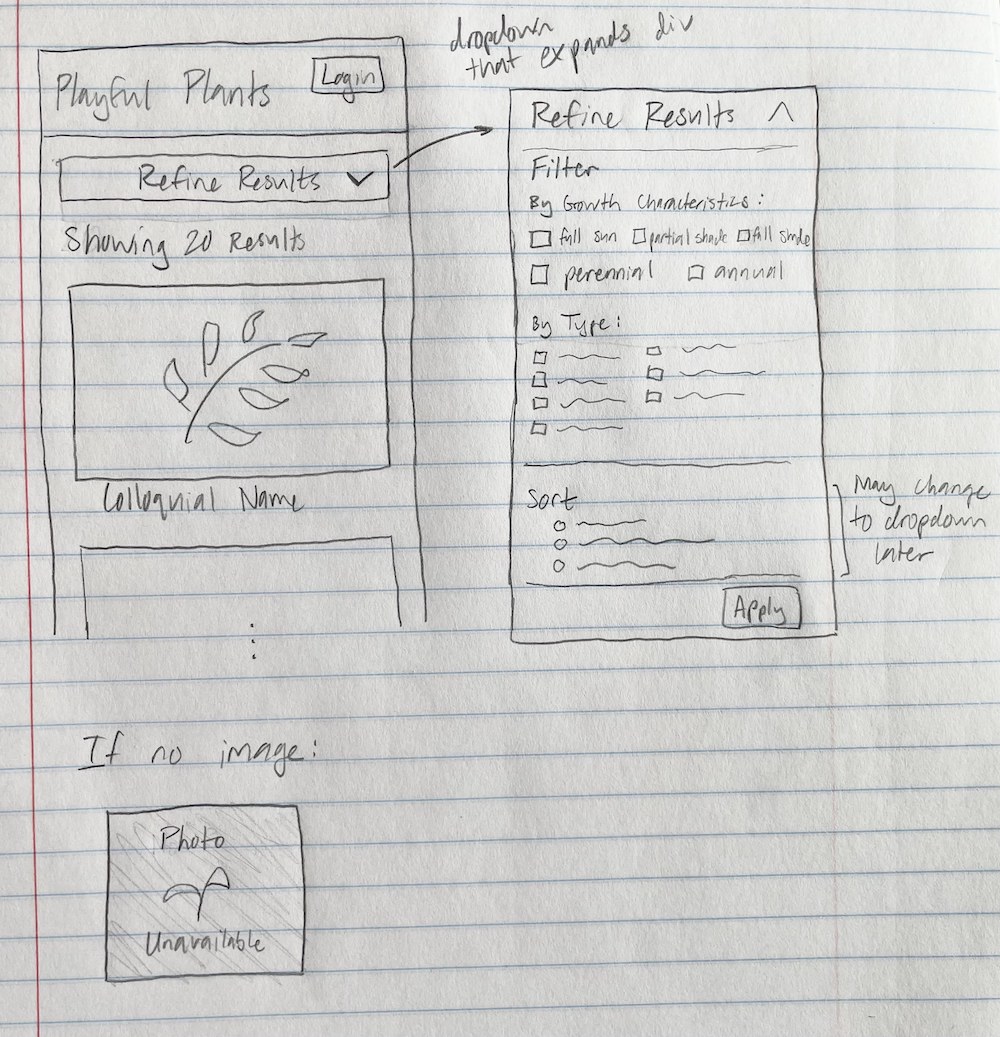 dropdown
that expands div
Playful Plants
Login
Refine Results
Showing 20 Results
Colloquial Name
Refine Results
Filter
By Growth Characteristics:
full sun partial shade full shade
perennial annual
By Type:
Sort
Apply
May change
to dropdown
later
If no image:
Photo
Unavailable